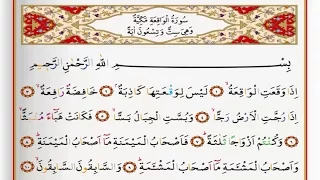 سُورَةُ الْوَاقِعَةِ مَكِّيَّةٌ
وَهِيَ سِتٌّ وَتِسْعُونَ اٰيَةً
بِسْمِ اللّٰهِ الرَّحْمٰنِ الرَّحٖيمِ
اِذَا وَقَعَتِ الْوَاقِعَةُۙ ١ لَيْسَ لِوَقْعَتِهَا كَاذِبَةٌۘ ٢ خَافِضَةٌ رَافِعَةٌۙ ٣
اِذَا رُجَّتِ الْاَرْضُ رَجًّاۙ ٤ وَبُسَّتِ الْجِبَالُ بَسًّاۙ ٥ فَكَانَتْ هَبَٓاءً مُنْبَثًّاۙ ٦
وَكُنْتُمْ اَزْوَاجًا ثَلٰثَةًؕ ٧ فَاَصْحَابُ الْمَيْمَنَةِ مَٓا اَصْحَابُ الْمَيْمَنَةِؕ ٨
وَاَصْحَابُ الْمَشْـَٔمَةِ مَٓا اَصْحَابُ الْمَشْـَٔمَةِؕ ٩ وَالسَّابِقُونَ السَّابِقُونَۙ ١٠